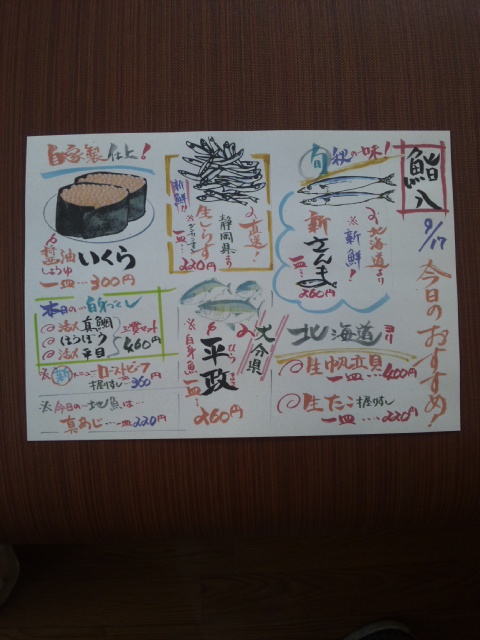 鮨八
9/17
今日のおすすめ!
旬 秋の味!
北海道より
※新鮮!
新さんま
一皿…260円
北海道ヨリ
生帆立貝
一皿…400円
生たこ握りずし
一皿…220円
直送!
静岡県より
生しらす
新鮮!!
一皿…220円
大分県
平政
※白身魚
一皿…260円
自家製仕上!
醤油いくら
しょうゆ
一皿…300円
本日の…白身づくし
活〆真鯛
ほうぼう
活〆平目
三貫セット
460円
※新メニューローストビーフ
握りずし…360円
※今日の…地魚は…
真あじ…一皿220円